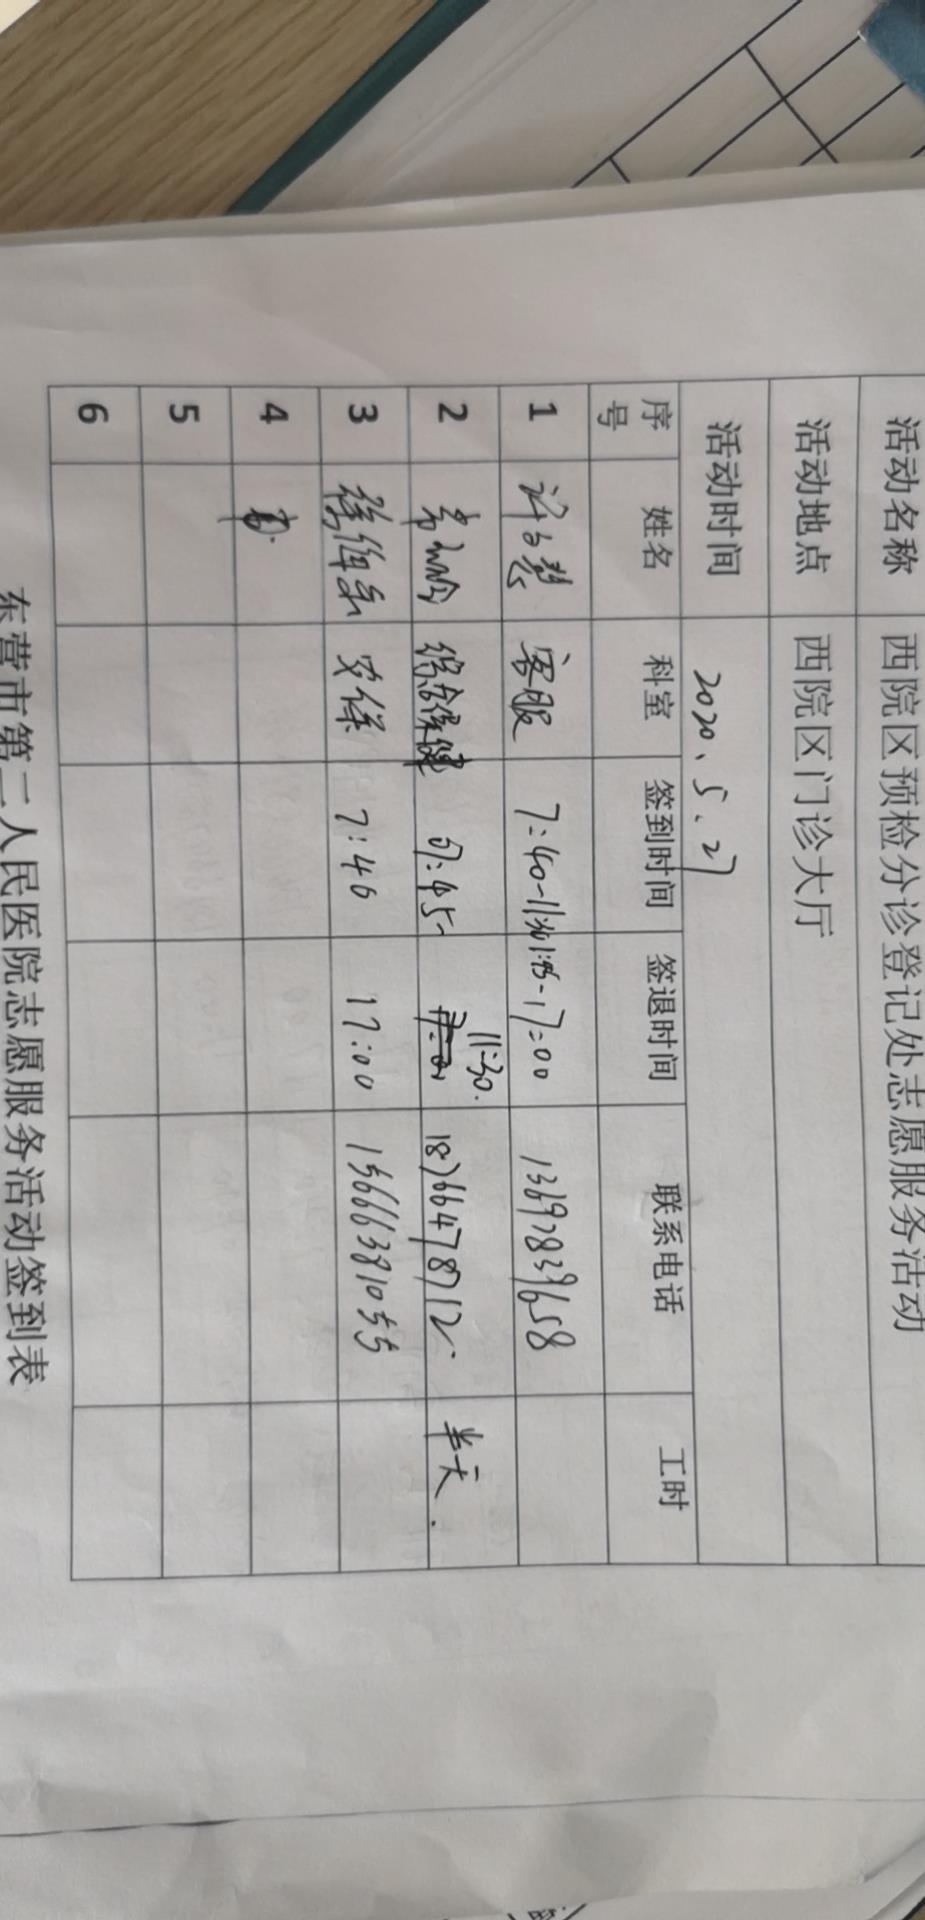 活动名称 西院区预检分诊登记处志愿服务活动
活动地点 西院区门诊大厅
活动时间 2020、5、27
序号 姓名 科室 签到时间 签退时间 联系电话 工时
1 客服 7:40-11:30 1:45-17:00 13697839658
2 综合保健 07:45 11:30. 18766478712. 半天.
3 7:40 17:00 15666381055
4
5
6
东营市第二人民医院志愿服务活动签到表